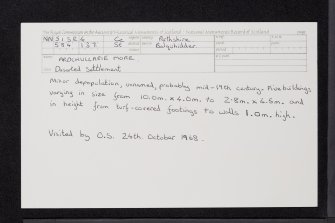 The Royal Commission on the Ancient and Historical Monuments of Scotland : National Monuments Record of Scotland
NN 51 SE 4 Perthshire
584 137 SE Balquhidder
ARDCHULLARIE MORE
Deserted Settlement
Minor depopulation, unnamed, probably mid-19th century. Five buildings
varying in size from 10.0m. x 4.0m. to 2.8m. x 4.6m. and
in height from turf-covered footings to walls 1.0m. high.
Visited by O.S. 24th October 1968.